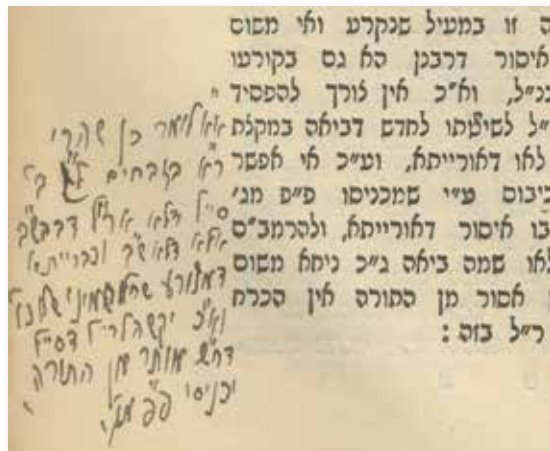 ה זו במעיל שנקרע ואי משום
איסור דרבנן הא גם בקורעו
כנ"ל, וא"כ אין צורך להפסיד
"ל לשיטתו לחדש דביאה במקצת
לאו דאורייתא, וע"כ אי אפשר
כיבוס ע"י שמכניסו פ"פ מג'
בו איסור דאורייתא, ולהרמב"ם
לאו שמה ביאה ג"כ ניחא משום
אסור מן התורה אין הכרח
ר"ל בזה :
א"א לומר כן שהרי
ר"א בזבחים
ס"ל דלא
אלא דלא וכברייתא
דמצורע
וא"כ יקשה לר"ל דס"ל
מותר מן התורה
יכניסו פ"פ מג'